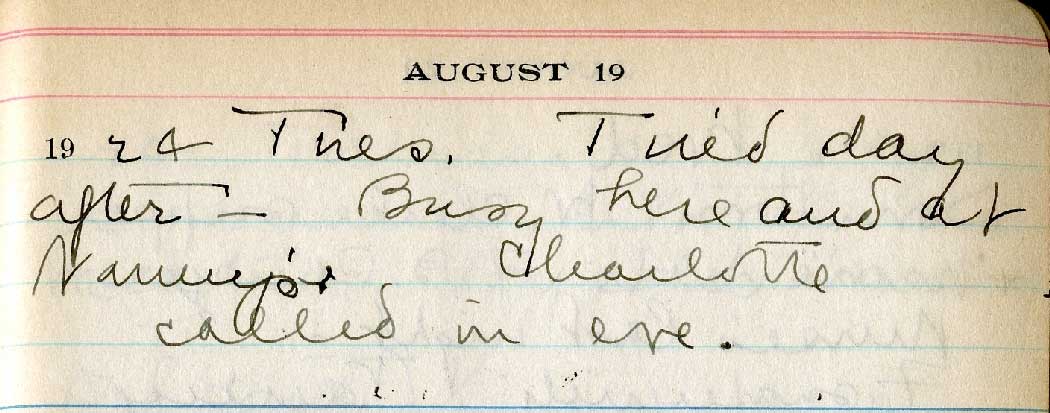 AUGUST 19
1924 Tues. Tired day
after — Busy here and at
Nanny's Charlotte
called in eve.